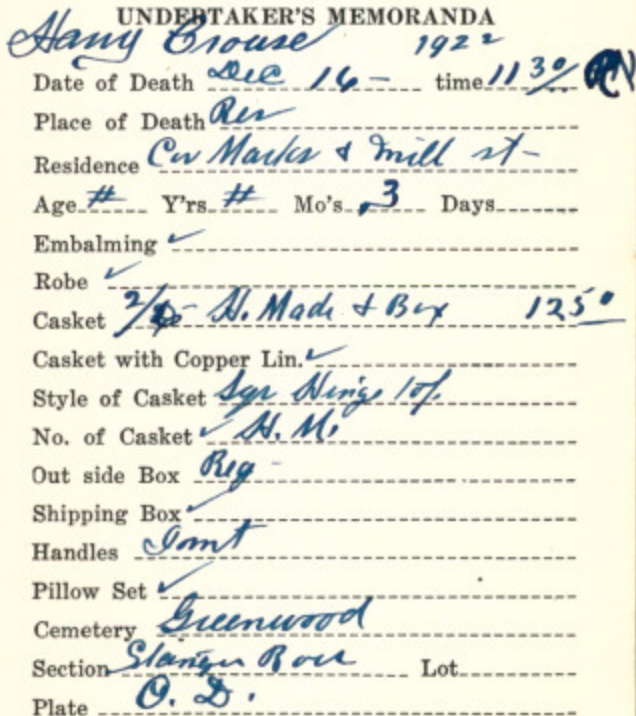 UNDERTAKER'S MEMORANDA
Harry Crouse 1922
Date of Death Dec 16 - time 11 30/
Place of Death Res
Residence Cor Marks & Mill st -
Age # Y'rs # Mo's 3 Days
Embalming ✓
Robe ✓
Casket 2/ H. Made & Box 12 50
Casket with Copper Lin. ✓
Style of Casket Sqr Hinge Top
No. of Casket ✓ H. M.
Out side Box Reg -
Shipping Box ✓
Handles
Pillow Set ✓
Cemetery Greenwood
Section Stranger Row Lot
Plate O. D.